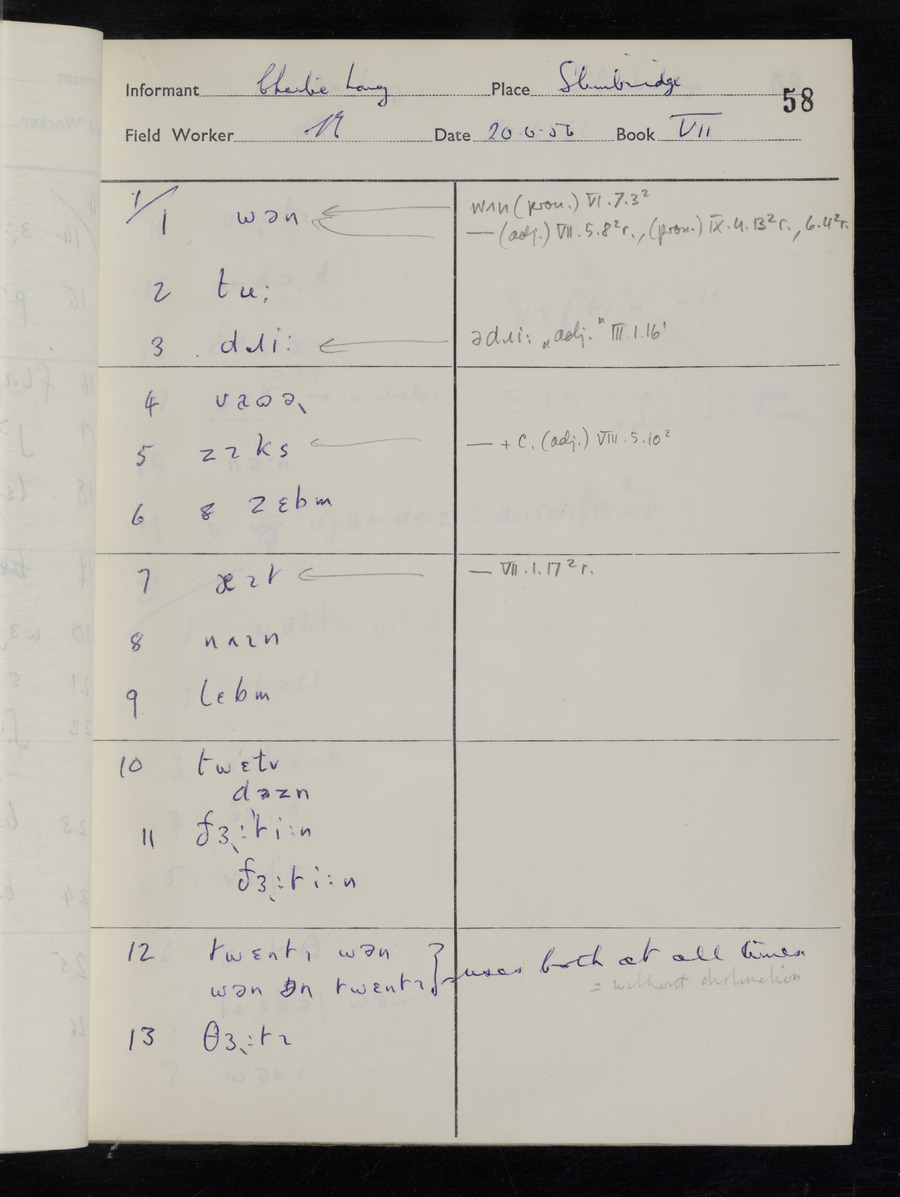 Informant Charlie Long Place Slimbridge
58
Field Worker Date 20·6·56 Book VII
1/
1 wən wʌn (pron.) VI.7.3²
— (adj.) VII.5.8²r., (pron.) IX.4.13²r., 6.4²r.
2 tu:
3 dɹi: ədɹi: „adj." III.1.16'
4
5 zɪks — + c. (adj.) VIII.5.10²
6 zɛbm
7 æɪt — VII.1.17²r.
8 nʌɪn
9 lɛbm
10
dəzn
11 fɜ˞:ˈti:n
fɜ˞:ti:n
12 twɛntɪ wən
wən ən twɛntɪ } uses both at all times
= without distinction
13 θɜ˞:tɪ